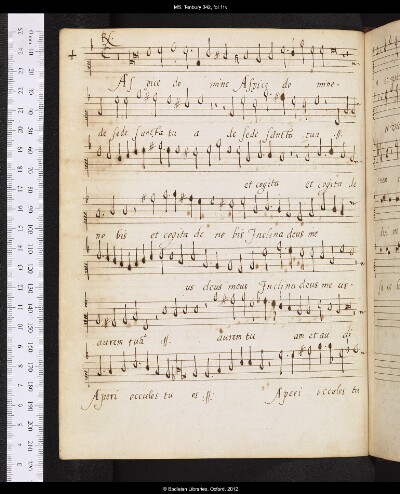 MS. Tenbury 342, fol. 11v
As pice do mine Aspice do mine-
de sede sancta tu a de sede sancta tua :||:
et cogita et cogita de
no bis et cogita de no bis Inclina deus me
us deus meus Inclina deus me us-
aurem tuā :||: aurem tu am et au di
Aperi occulos tu os :||: Aperi occulos tu
© Bodleian Libraries, Oxford, 2012